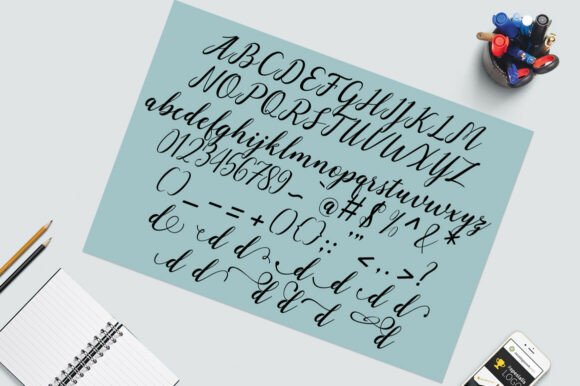 ABCDEFGHIJKLM
NOPQRSTUVWXYZ
abcdefghijklmnopqrstuvwxyz
0123456789 ~ ` @#$%^&*
() _ - = + {} () : ; " ' < , . > ?
d d d d d d d
d d d d d d
LOGO